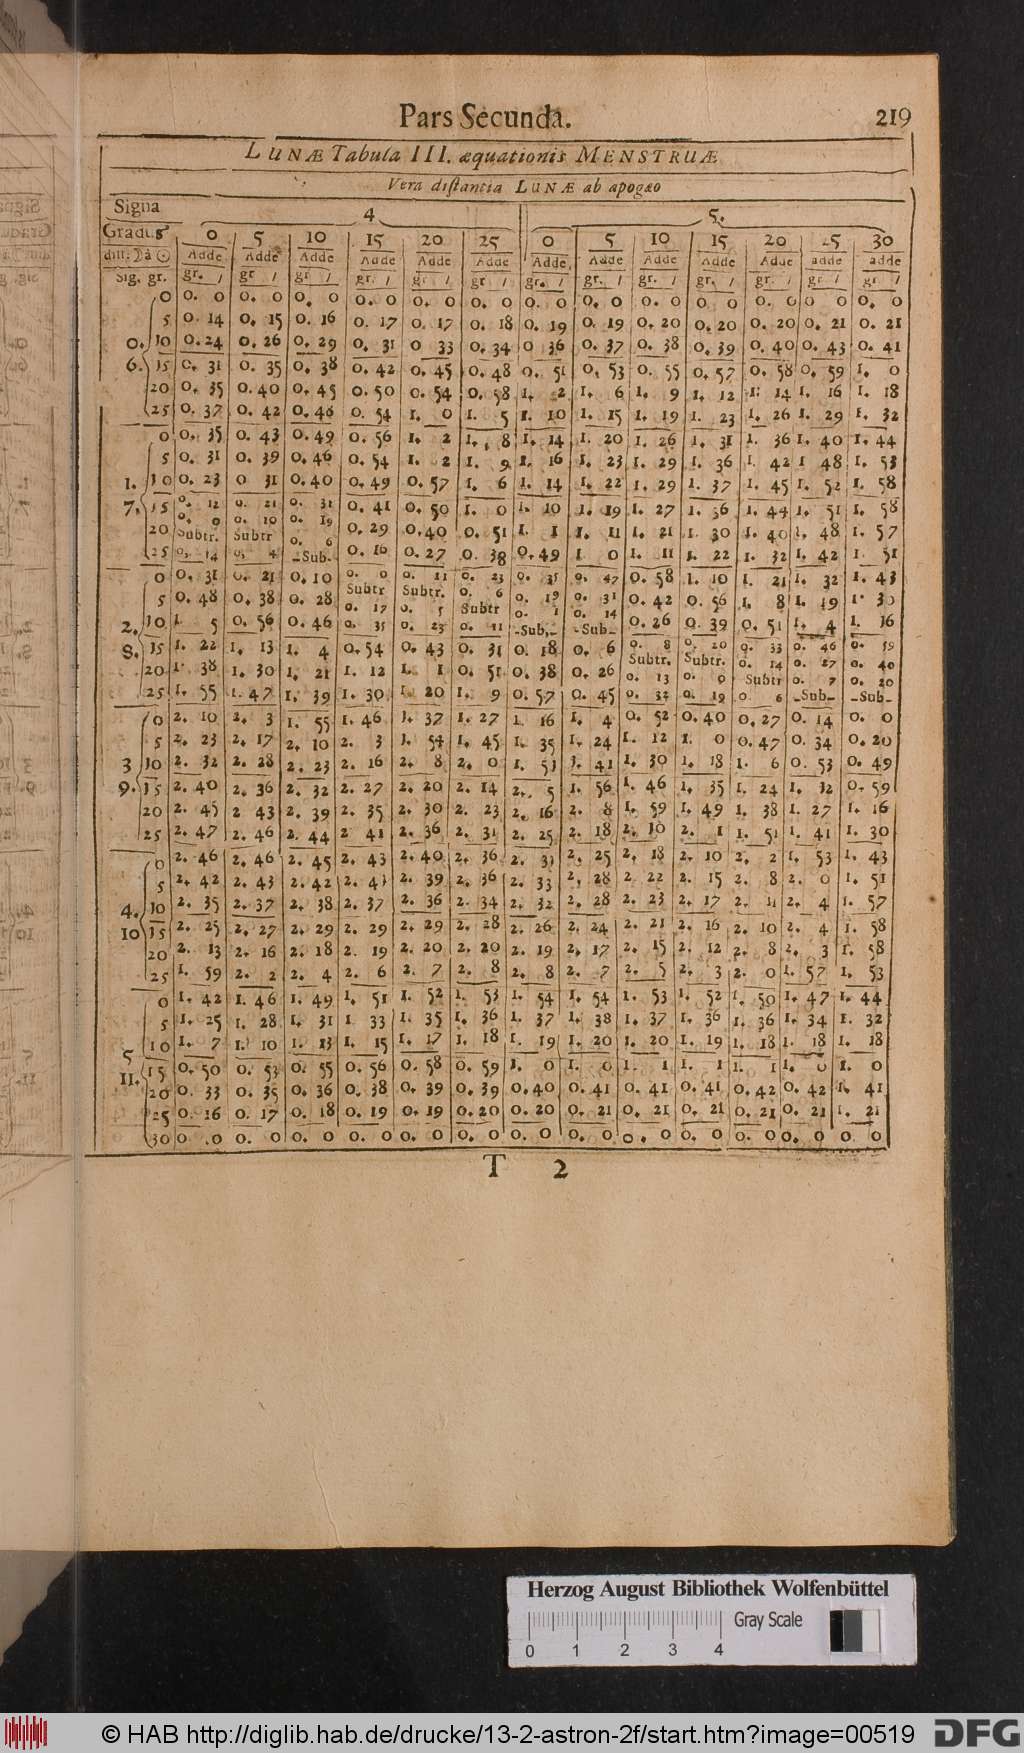 Pars Secunda. 219
LUNÆ Tabula III. æquationis MENSTRUÆ
Vera distantia LUNÆ ab apogæo
Signa 4 5.
Gradus 0 5 10 15 20 25 0 5 10 15 20 25 30
dist: ☽ à ☉ Adde Adde Adde Adde Adde Adde Adde Adde Adde Adde Adde adde adde
Sig. gr. gr. / gr / gr / gr. / gr / gr / gr. / gr. / gr. / gr. / gr. / gr / gr /
0 0. 0 0. 0 0. 0 0. 0 0. 0 0. 0 0. 0 0. 0 0. 0 0. 0 0. 0 0 0 0. 0
5 0. 14 0. 15 0. 16 0. 17 0. 17 0. 18 0. 19 0. 19 0. 20 0. 20 0. 20 0. 21 0. 21
0. 10 0. 24 0. 26 0. 29 0. 31 0 33 0. 34 0 36 0. 37 0. 38 0. 39 0. 40 0. 43 0. 41
6. 15 0. 31 0. 35 0. 38 0. 42 0. 45 0. 48 0. 51 0. 53 0. 55 0. 57 0. 58 0. 59 1. 0
20 0. 35 0. 40 0. 45 0. 50 0. 54 0. 58 1. 2 1. 6 1. 9 1. 12 1. 14 1. 16 1. 18
25 0. 37 0. 42 0. 46 0. 54 1. 0 1. 5 1. 10 1. 15 1. 19 1. 23 1. 26 1. 29 1. 32
0 0. 35 0. 43 0. 49 0. 56 1. 2 1. 8 1. 14 1. 20 1. 26 1. 31 1. 36 1. 40 1. 44
5 0. 31 0. 39 0. 46 0. 54 1. 2 1. 9 1. 16 1. 23 1. 29 1. 36 1. 42 1 48 1. 53
1. 10 0. 23 0 31 0. 40 0. 49 0. 57 1. 6 1. 14 1. 22 1. 29 1. 37 1. 45 1. 52 1. 58
7. 15 0. 12 0. 21 0. 31 0. 41 0. 50 1. 0 1. 10 1. 19 1. 27 1. 36 1. 44 1. 51 1. 58
20 0. 0 Subtr. 0. 10 Subtr 0. 19 0. 29 0. 40 0. 51 1. 1 1. 11 1. 21 1. 30 1. 40 1. 48 1. 57
25 0. 14 0. 4 0. 6 -Sub- 0. 16 0. 27 0. 38 0. 49 1 0 1. 11 1. 22 1. 32 1. 42 1. 51
0 0. 31 0. 21 0. 10 0. 0 Subtr 0. 11 Subtr. 0. 23 0. 35 0. 47 0. 58 1. 10 1. 21 1. 32 1. 43
5 0. 48 0. 38 0. 28 0. 17 0. 5 0. 6 Subtr 0. 19 0. 31 0. 42 0. 56 1. 8 1. 19 1. 30
2. 10 1. 5 0. 56 0. 46 0. 35 0. 23 0. 11 0. 1 -Sub.- 0. 14 -Sub- 0. 26 0. 39 0. 51 1. 4 1. 16
8. 15 1. 22 1. 13 1. 4 0. 54 0. 43 0. 31 0. 18 0. 6 0. 8 Subtr. 0. 20 Subtr. 0. 33 0. 46 0. 59
20 1. 38 1. 30 1. 21 1. 12 1. 1 0. 51 0. 38 0. 26 0. 13 0. 0 0. 14 Subtr 0. 27 0. 40
25 1. 55 1. 47 1. 39 1. 30 1. 20 1. 9 0. 57 0. 45 0. 32 0. 19 0. 6 0. 7 -Sub- 0. 20 -Sub-
0 2. 10 2. 3 1. 55 1. 46 1. 37 1. 27 1. 16 1. 4 0. 52 0. 40 0. 27 0. 14 0. 0
5 2. 23 2. 17 2. 10 2. 3 1. 54 1. 45 1. 35 1. 24 1. 12 1. 0 0. 47 0. 34 0. 20
3 10 2. 32 2. 28 2. 23 2. 16 2. 8 2. 0 1. 51 1. 41 1. 30 1. 18 1. 6 0. 53 0. 49
9. 15 2. 40 2. 36 2. 32 2. 27 2. 20 2. 14 2. 5 1. 56 1. 46 1. 35 1. 24 1. 12 0. 59
20 2. 45 2 43 2. 39 2. 35 2. 30 2. 23 2. 16 2. 8 1. 59 1. 49 1. 38 1. 27 1. 16
25 2. 47 2. 46 2. 44 2 41 2. 36 2. 31 2. 25 2. 18 2. 10 2. 1 1. 51 1. 41 1. 30
0 2. 46 2. 46 2. 45 2. 43 2. 40 2. 36 2. 31 2. 25 2. 18 2. 10 2. 2 1. 53 1. 43
5 2. 42 2. 43 2. 42 2. 41 2. 39 2. 36 2. 33 2. 28 2 22 2. 15 2. 8 2. 0 1. 51
4. 10 2. 35 2. 37 2. 38 2. 37 2. 36 2. 34 2. 32 2. 28 2. 23 2. 17 2. 11 2. 4 1. 57
10 15 2. 25 2. 27 2. 29 2. 29 2. 29 2. 28 2. 26 2. 24 2. 21 2. 16 2. 10 2. 4 1. 58
20 2. 13 2. 16 2. 18 2. 19 2. 20 2. 20 2. 19 2. 17 2. 15 2. 12 2. 8 2. 3 1. 58
25 1. 59 2. 2 2. 4 2. 6 2. 7 2. 8 2. 8 2. 7 2. 5 2. 3 2. 0 1. 57 1. 53
0 1. 42 1. 46 1. 49 1. 51 1. 52 1. 53 1. 54 1. 54 1. 53 1. 52 1. 50 1. 47 1. 44
5 1. 25 1. 28 1. 31 1 33 1. 35 1. 36 1. 37 1. 38 1. 37 1. 36 1. 36 1. 34 1. 32
5 10 1. 7 1. 10 1. 13 1. 15 1. 17 1. 18 1. 19 1. 20 1. 20 1. 19 1. 18 1. 18 1. 18
11. 15 0. 50 0. 53 0. 55 0. 56 0. 58 0. 59 1. 0 1. 0 1. 1 1. 1 1. 1 1. 0 1. 0
20 0. 33 0. 35 0. 36 0. 38 0. 39 0. 39 0. 40 0. 41 0. 41 0. 41 0. 42 0. 42 1. 41
25 0. 16 0. 17 0. 18 0. 19 0. 19 0. 20 0. 20 0. 21 0. 21 0. 21 0. 21 0. 21 1. 21
30 0 0 0. 0 0. 0 0. 0 0. 0 0. 0 0. 0 0. 0 0. 0 0. 0 0. 0 0. 0 0 0
T 2
Herzog August Bibliothek Wolfenbüttel
Gray Scale
0 1 2 3 4
© HAB http://diglib.hab.de/drucke/13-2-astron-2f/start.htm?image=00519 DFG